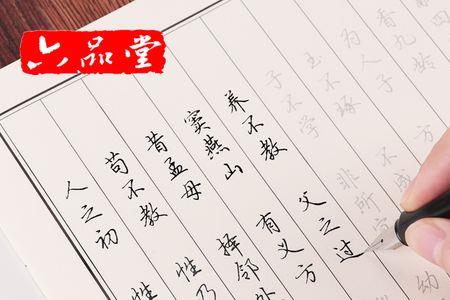 六品堂
人之初 性
苟不教 性乃
昔孟母 择邻处
窦燕山 有义方
养不教 父之过
子不学 非所
玉不琢 不成
为人子 方
香九龄